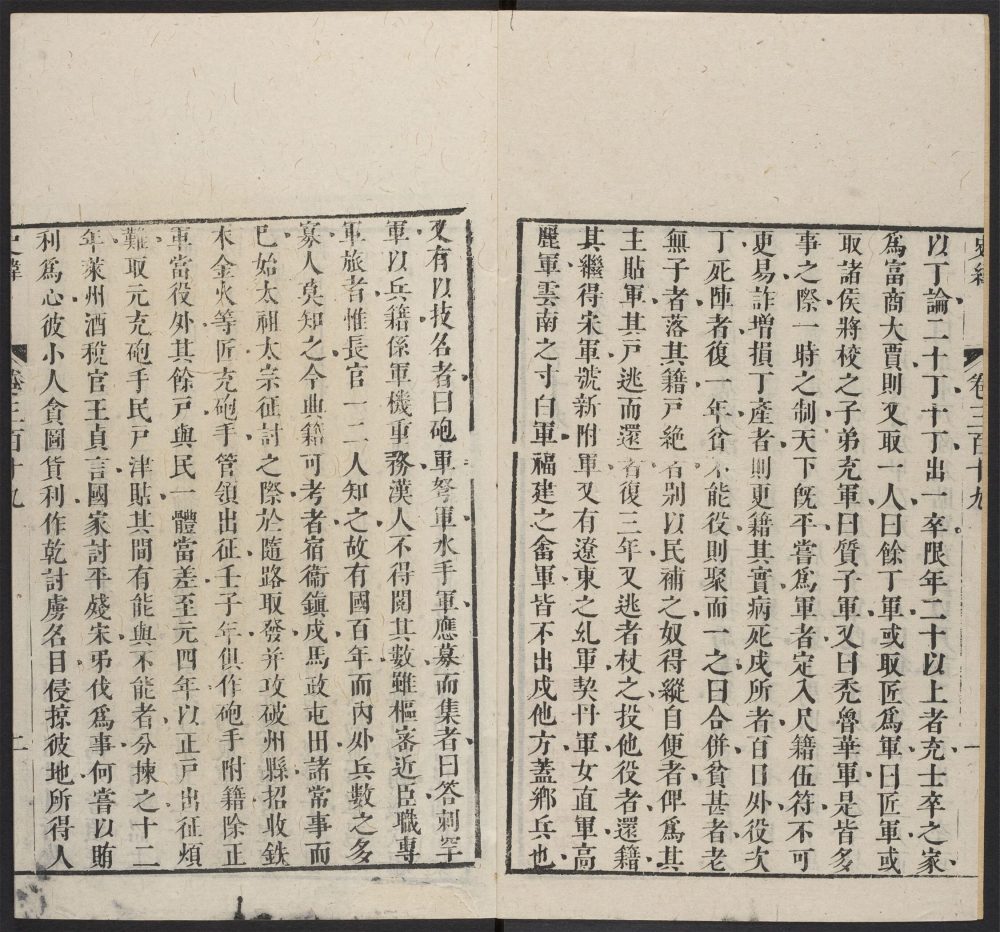 史緯 卷三百十九 一
以丁論二十丁十丁出一卒限年二十以上者充士卒之家
爲富商大賈則又取一人曰餘丁軍或取匠爲軍曰匠軍或
取諸侯將校之子弟充軍曰質子軍又曰禿魯華軍是皆多
事之際一時之制天下旣平嘗爲軍者定入尺籍伍符不可
更易詐增損丁產者則更籍其實病死戍所者百日外役次
丁死陣者復一年貧不能役則聚而一之曰合併貧甚者老
無子者落其籍戸絶者別以民補之奴得縱自便者俾爲其
主貼軍其戸逃而還者復三年又逃者杖之投他役者還籍
其繼得宋軍號新附軍又有遼東之乣軍契丹軍女直軍高
麗軍雲南之寸白軍福建之畬軍皆不出戍他方蓋鄉兵也
又有以技名者曰砲軍弩軍水手軍應募而集者曰答剌罕
軍以兵籍係軍機重務漢人不得閱其數雖樞密近臣職專
軍旅者惟長官一二人知之故有國百年而內外兵數之多
寡人莫知之今典籍可考者宿衞鎭戍馬政屯田諸常事而
已始太祖太宗征討之際於隨路取發并攻破州縣招收鐵
木金火等匠充砲手管領出征壬子年俱作砲手附籍除正
軍當役外其餘戸與民一體當差至元四年以正戸出征煩
難取元充砲手民戸津貼其間有能與不能者分揀之十二
年萊州酒稅官王貞言國家討平殘宋弔伐爲事何嘗以賄
利爲心彼小人貪圖貨利作乾討虜名目侵掠彼地所得人
史緯 卷三百十九 二